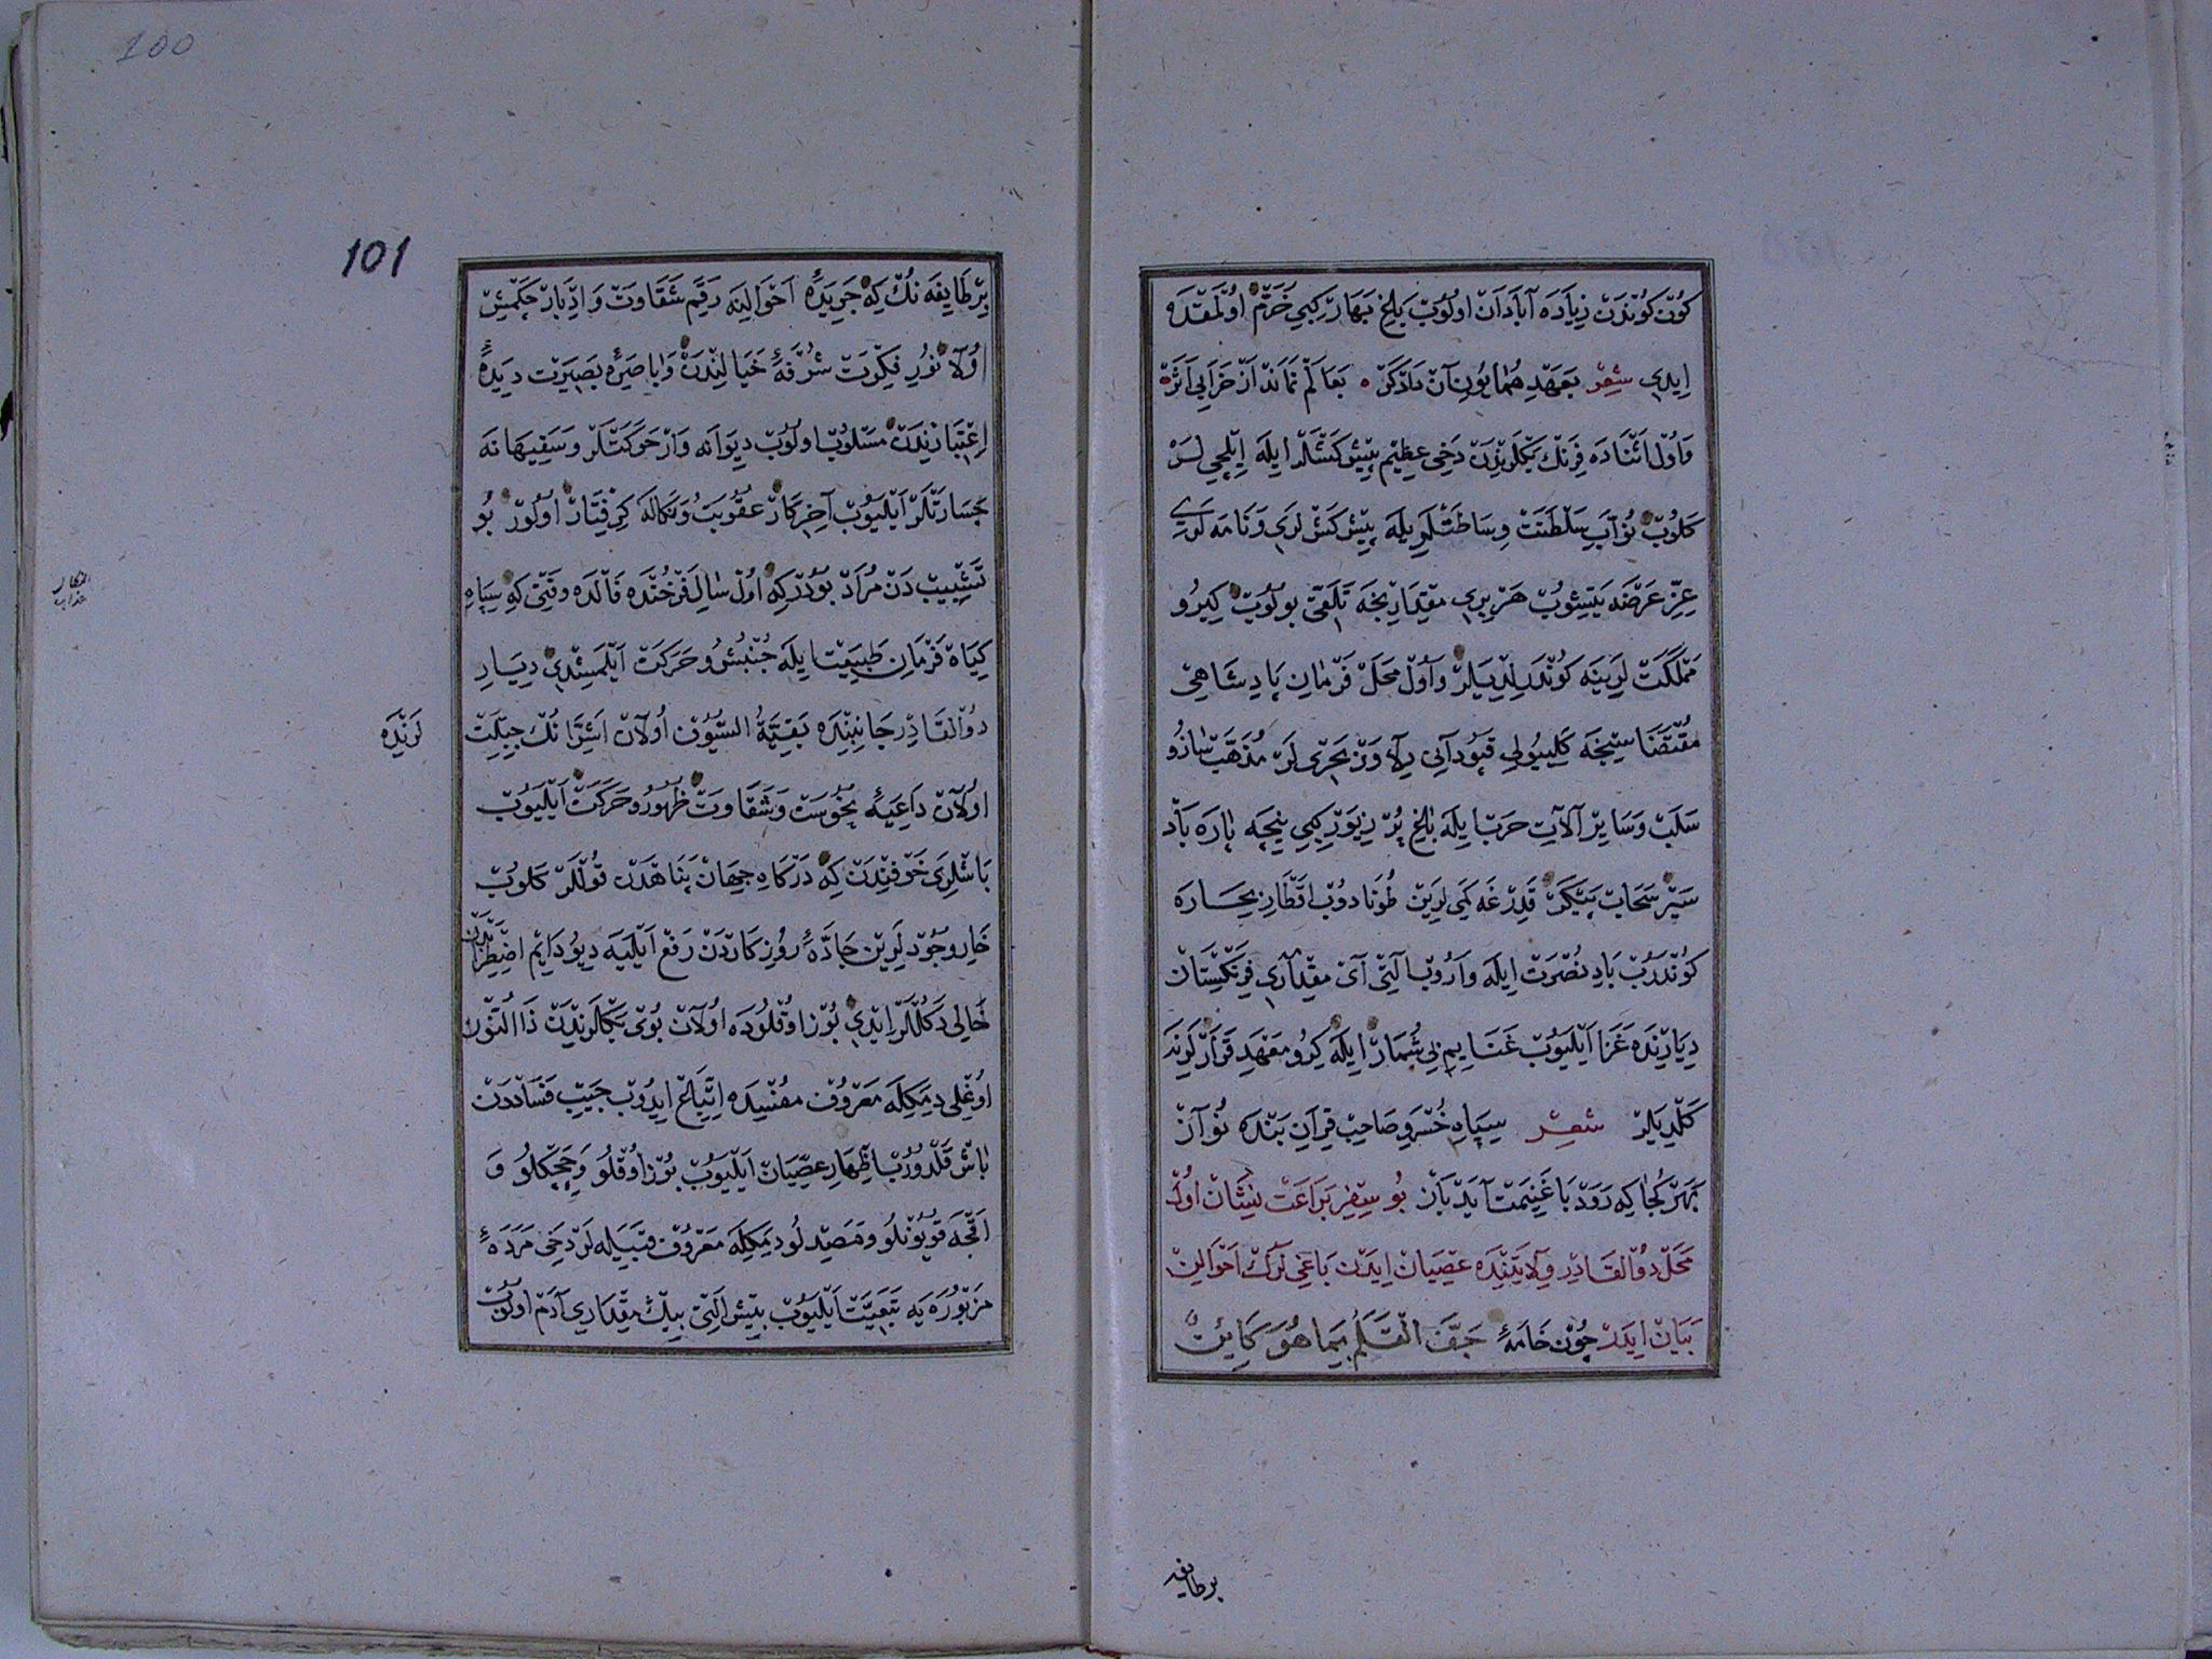 كُونْ كُونْدَنْ زِيَادَه آبَادَانْ اولُوبْ بَاغِ بَهَارْ كِبِي خُرَّمْ اوُلْمَقْدَه
اِيدِي شِعِرْ بَعَهْدِ هُمَايُونِ آنْ دَادْكَرْ ه بَعَالَمْ نَمَانْد اَزْ خَرَابِي اَثَرْ ه
وَاوُلْ اَثْنَادَه فِرَنْكْ بَكْلَرِنْدَنْ دَخِي عَظِيم پِيشْكَشْلَرْ ايلَه اِيلْچِي لَرْ
كَلُوبْ نُوَّابِ سَلْطَنَتْ وِسَاطَتْلَرِيلَه پِيشْكَشْ لَرِي وَنَامَه لَرِي
عِزِّ عَرْضَه يَتِيشُوبْ هَرْ بِرِي مِقْدَارِنْجَه تَلَقِّي بُولُوبْ كِيرُو
مَمْلَكَتْ لَرِينَه كُونْدَرِلْدِيلَرْ وَاوُلْ مَحَلّ فَرْمَانِ پَادِشَاهِي
مُقْتَضَاسِنْجَه كَلِيبُولِي قَپُودَانِي دِلَاوَرْ بَحْرِي لَرْ مُذَهَّبْ سَازُو
سَلَبْ وَسَايِرْ آلَاتِ حَرْب ايلَه بَاغِ پُرْ زِيوَرْ كِبِي نِيچَه پَارَه بَادْ
سَيْر سَحَابْ پَيْكَرْ قَدِرْغَه كَمِي لَرِينْ طُونَادُوبْ اَقْطَارِ بِحَارَه
كُونْدَرُوبْ بَادِ نُصْرَتْ ايلَه وَارُوبْ آلْتِي آيْ مِقْدَارِي فِرَنْكِسْتَانْ
دِيَارِنْدَه غَزَا اَيْلَيُوبْ غَنَايِمِ بِي شُمَارْ ايلَه كِرُو مَعْهَدِ قَرَارْلَرِنَه
كَلْدِيلَرْ شعر سِپَاهِ خُسْرَوِ صَاحِبْ قِرَانِ بَنْدَه نُوَازْ
بَهَرْ كُجَا كِه رَوَدْ بَا غَنِيمَتْ آيَدْ بَازْ بُو سِفِرِ بَرَاعَتْ نِشَانْ اوُلْ
مَحَلّ ذُو الْقَادِرْ وِلَايَتِنْدَه عِصْيَانْ اِيدَنْ بَاغِي لَرُكْ اَحْوَالِينْ
بَيَانْ اِيدَرْ چُونْ خَامَهٔ جَفَّ الْقَلَمُ بِمَا هُوَ كَائِنٌ
برطايفه
101
بِرْطَايِفَه نُكْ كِه جَرِيدَهٔ اَحْوَالِينَه رَقَمِ شَقَاوَتْ وَاِدْبَارْ چَكِلْمِشْ
اوُلَا نُورِ فِكْرِتْ شُرْفَهٔ خَيَالِنْدَنْ وَبَاصِرَهٔ بَصِيرَتْ دِيدَهٔ
اِعْتِبَارِنْدَنْ مَسْلُوبْ اولُوبْ دِيوَانَه وَارْ حَرَكَتْلَرْ وَسَفِيهَانَه
جَسَارَتْلَرْ اَيْلَيُوبْ آخِرِ كَارْ عُقُوبَتْ وَنَكَالَه كِرِفْتَارْ اولُورْ بُو
تَشْبِيبْ دَنْ مُرَادْ بُودُرْ كِه اوُلْ سَالِ فَرْخُنْدَه فَالْدَه وَقْتِي كِه سِپَاهِ
كِيَاهْ فَرْمَانِ طَبِيعَتْ ايلَه جُنْبُشْ وحَرَكَتْ اَيْلَمِشْدِي دِيَارِ
ذُو الْقَادِرْ جَانِبِنْدَه بَقِيَّةُ السُّيُوفْ اوُلَانْ اَشِرَّانُكْ جِبِلَّتْ
لَرِنْدَه
اوُلَانْ دَاعِيَهٔ نُحُوسَتْ وَشَقَاوَتْ ظُهُورُ وحَرَكَتْ اَيْلَيُوبْ
بَاشْلَرِي خَوْفِنْدَنْ كِه دَرْكَاهِ جِهَانْ پَنَاهْدَنْ قُولْلَرْ كَلُوبْ
خَارِ وجُودْ لَرِينْ جَادَّهٔ رُوزِكَارْدَنْ رَفْع اَيْلَيَه دِيُو دَايِمْ اضْطِرَابْدَنْ
خَالِي دَكُلْلَرْ اِيدِي بُوزْ اوُقْلُودَه اوُلَانْ بُوي بَكْلَرِنْدَنْ ذَا النُّونْ
اوُغْلِي دِيمَكْلَه مَعْرُوفْ مُفْسِدَه اِتِّبَاعْ ايدُوبْ جَيْبِ فَسَادْدَنْ
بَاشْ قَلْدُورُبْ اِظْهَارِ عِصْيَانْ اَيْلَيُوبْ بُوزْ اوُقْلُو وَچِچَكْلُو وَ
اَقْچَه قُويُونْلُو وَمَصِيدْلُو دِيمَكْلَه مَعْرُوفْ قَبِيلَه لَرْ دَخِي مَرَدَهٔ
مَزْبُورَه يَه تَبَعِيَّتْ اَيْلَيُوبْ بِيشْ آلْتِي بِيكْ مِقْدَارِي آدَمْ اولُوبْ